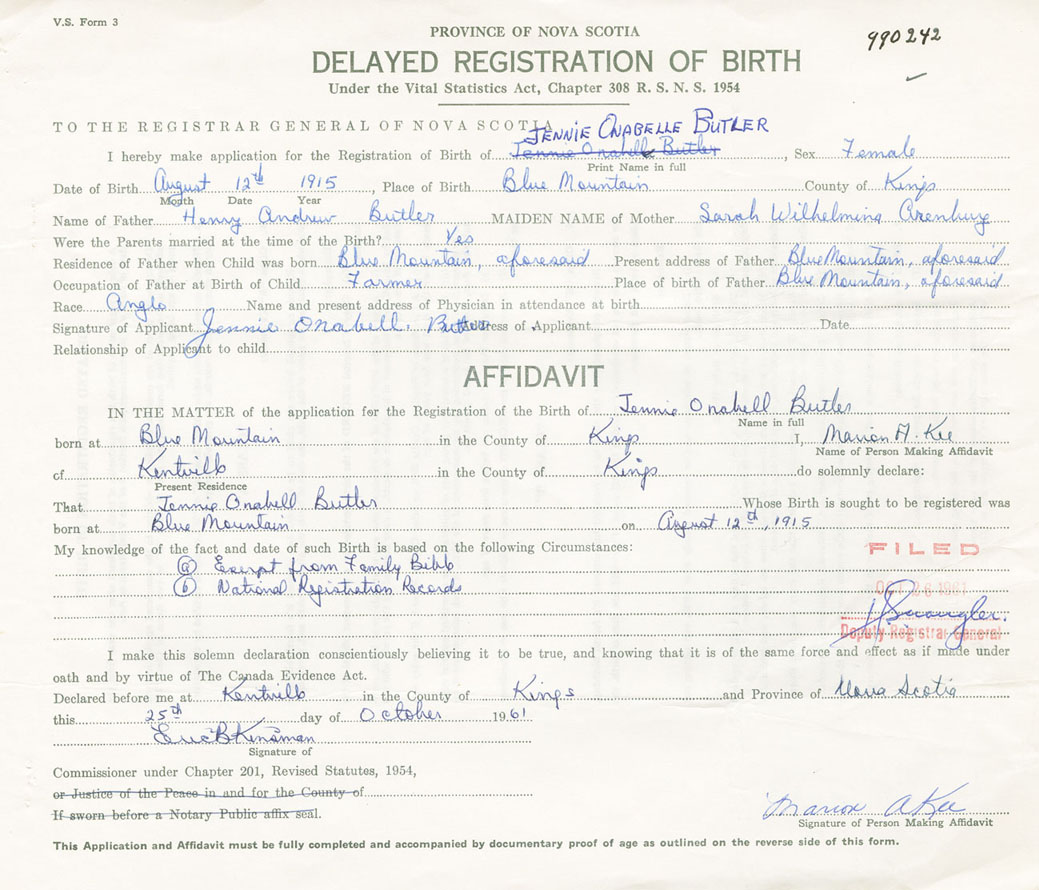 V.S. Form 3
PROVINCE OF NOVA SCOTIA
990242
DELAYED REGISTRATION OF BIRTH
Under the Vital Statistics Act, Chapter 308 R. S. N. S. 1954
TO THE REGISTRAR GENERAL OF NOVA SCOTIA
JENNIE ONABELLE BUTLER
I hereby make application for the Registration of Birth of Jennie Onabelle Butler, Sex Female
Print Name in full
Date of Birth August 12th 1915, Place of Birth Blue Mountain County of Kings
Month Date Year
Name of Father Henry Andrew Butler MAIDEN NAME of Mother Sarah Wilhelmina Arenburg
Were the Parents married at the time of the Birth? Yes
Residence of Father when Child was born Blue Mountain, aforesaid Present address of Father Blue Mountain, aforesaid
Occupation of Father at Birth of Child Farmer Place of birth of Father Blue Mountain, aforesaid
Race Anglo Name and present address of Physician in attendance at birth
Signature of Applicant Jennie Onabell. Butler Address of Applicant Date
Relationship of Applicant to child
AFFIDAVIT
IN THE MATTER of the application for the Registration of the Birth of Jennie Onabell Butler
Name in full
born at Blue Mountain in the County of Kings I, Marion A. Kee
Name of Person Making Affidavit
of Kentville in the County of Kings do solemnly declare:
Present Residence
That Jennie Onabell Butler Whose Birth is sought to be registered was
born at Blue Mountain on August 12th, 1915
My knowledge of the fact and date of such Birth is based on the following Circumstances:
FILED
(a) Exerpt from Family Bible
(b) National Registration Records
OCT 26 1961
Deputy Registrar General
I make this solemn declaration conscientiously believing it to be true, and knowing that it is of the same force and effect as if made under
oath and by virtue of The Canada Evidence Act.
Declared before me at Kentville in the County of Kings and Province of Nova Scotia
this 25th day of October 1961
Eric B Kinsman
Signature of
Commissioner under Chapter 201, Revised Statutes, 1954,
or Justice of the Peace in and for the County of
If sworn before a Notary Public affix seal.
Marion A Kee
Signature of Person Making Affidavit
This Application and Affidavit must be fully completed and accompanied by documentary proof of age as outlined on the reverse side of this form.